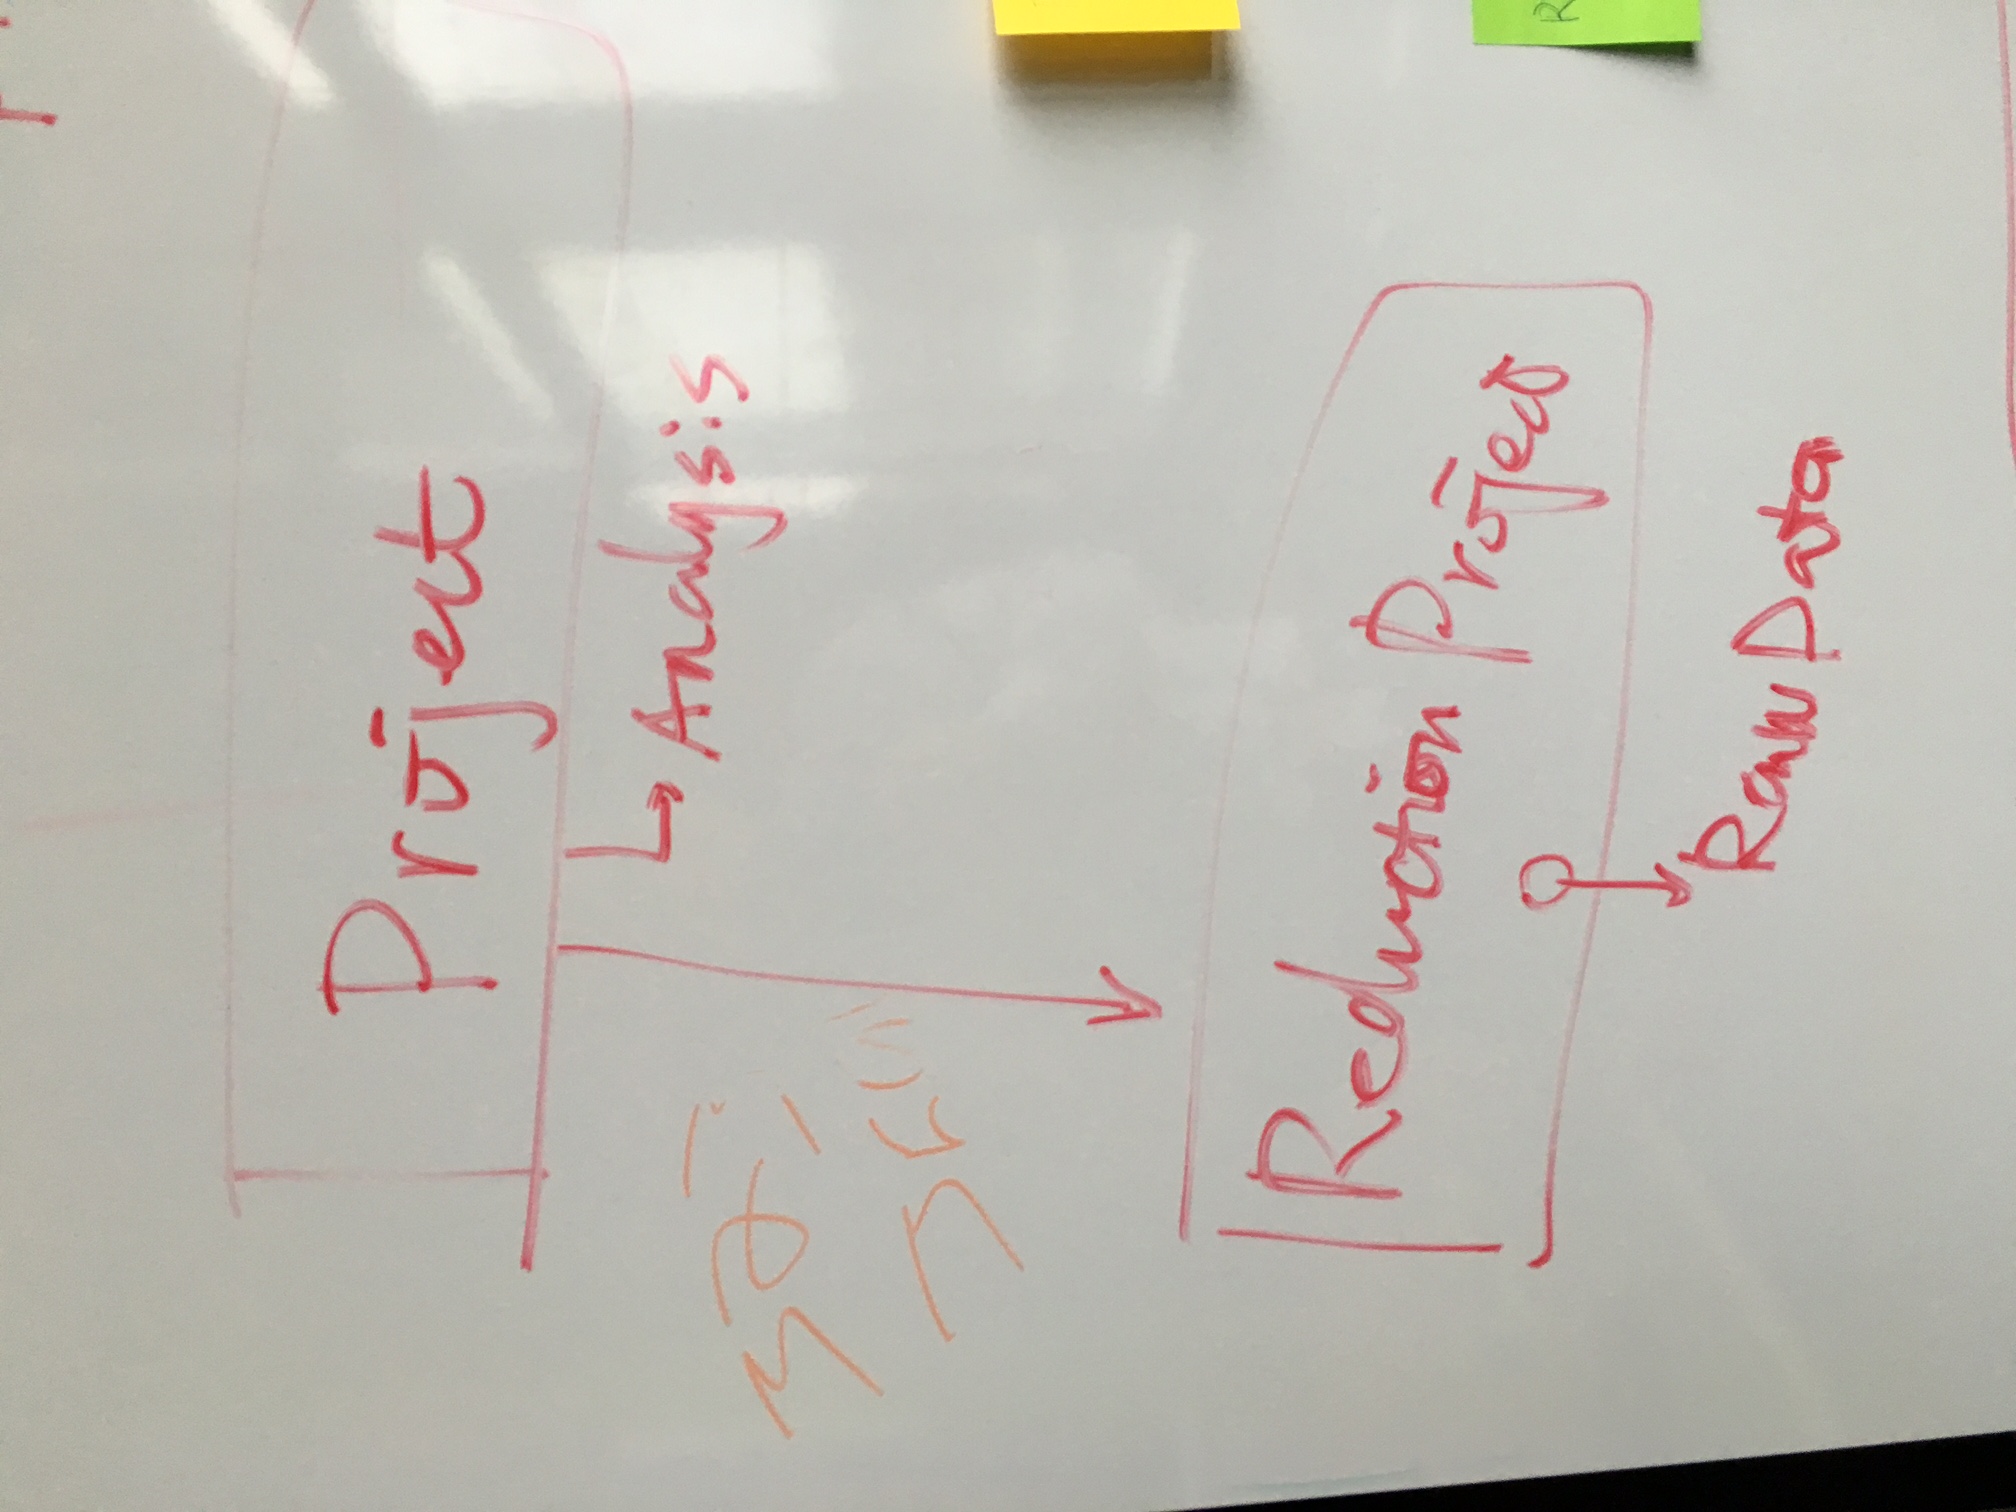 Project
Analysis
Reduction Project
Raw Data
R